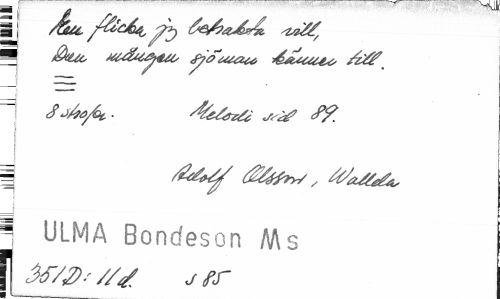 En flicka jag betrakta vill,
Den mången sjöman känner till.
8 strofer. Melodi sid 89.
Adolf Olsson, Wallda
ULMA Bondeson Ms
351D: 11d. s 85